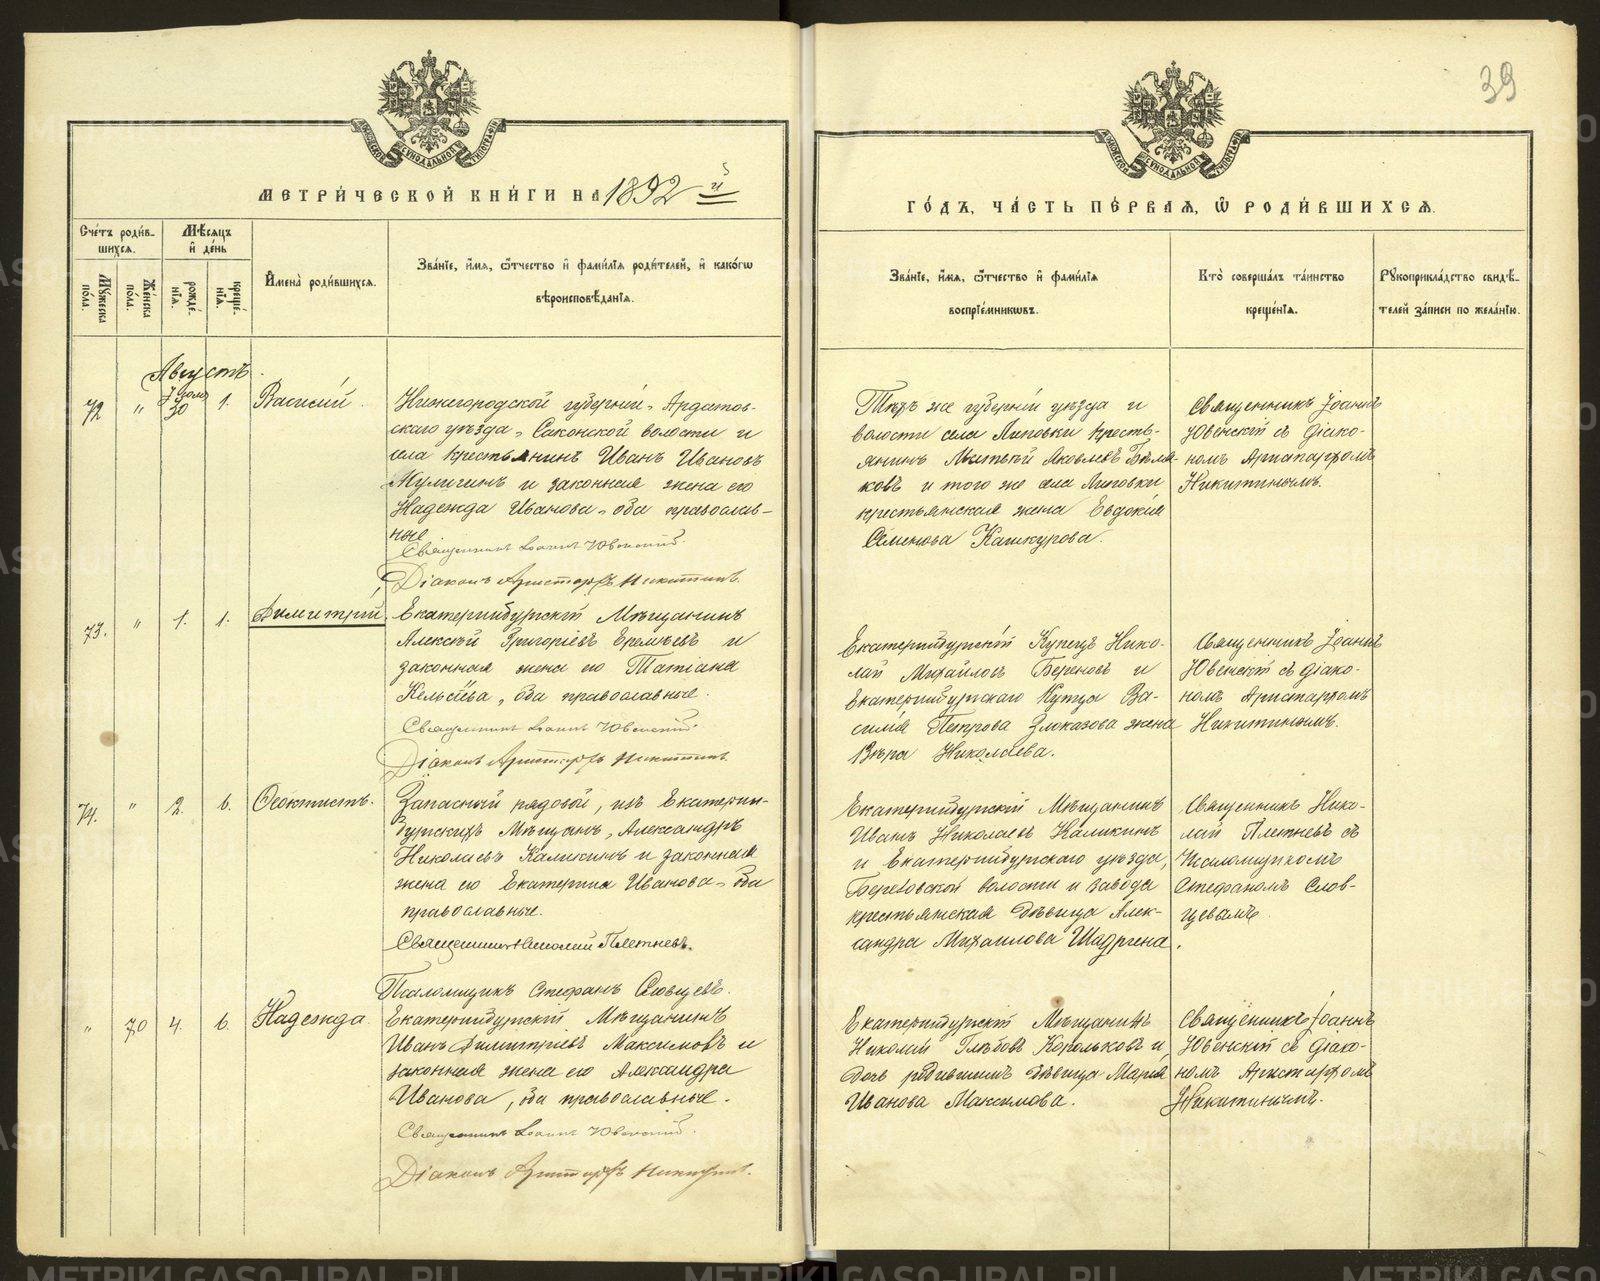 39
МЕТРИ́ЧЕСКОЙ КНИ́ГИ НА 1892 й
ГО́ДЪ, ЧА́СТЬ ПЕ́РВАЯ, Ѡ РОДИ́ВШИХСЯ.
Сче́тъ роди́в-
шихся.
Мѣ́сяцъ
и де́нь
Мꙋжеска по́ла.
Же́нска по́ла.
рожде́нїя.
креще́нїя.
Имена̀ роди́вшихся.
Зва́нїе, и́мя, ѻ́тчество и фами́лїя роди́телей, и како́гѡ
вѣроисповѣ́данїя.
Зва́нїе, и́мя, ѻ́тчество и фами́лїя
воспрїе́мникѡвъ.
Кто̀ соверша́лъ та́инство
креще́нїя.
Рꙋкоприкла́дство свидѣ́-
телей за́писи по жела́нїю.
Августъ
72 " 30 1. Василій.
Нижегородской губерніи, Ардатов-
скаго уѣзда, Саконской волости и
села крестьянинъ Иванъ Ивановъ
Мулигинъ и законная жена его
Надежда Иванова, оба православ-
ные
Священникъ Іоаннъ Ювенскій.
Діаконъ Аристархъ Никитинъ.
Тѣхъ же губерніи уѣзда и
волости села Липовки кресть-
янинъ Матвѣй Яковлевъ Бѣля-
ковъ и того же села Липовки
крестьянская жена Евдокія
Семенова Кашкурова.
Священникъ Іоаннъ
Ювенскій съ діако-
номъ Аристархомъ
Никитинымъ.
73. " 1. 1. Димитрій.
Екатеринбургскій Мѣщанинъ
Алексѣй Григорьевъ Еремѣевъ и
законная жена его Татіана
Кельсіева, оба православные.
Священникъ Іоаннъ Ювенскій.
Діаконъ Аристархъ Никитинъ.
Екатеринбургскій Купецъ Нико-
лай Михайловъ Береновъ и
Екатеринбургскаго Купца Ва-
силія Петрова Злоказова жена
Вѣра Николаева.
Священникъ Іоаннъ
Ювенскій съ діако-
номъ Аристархомъ
Никитинымъ.
74. " 2. 6. Ѳеоктистъ.
Запасный рядовой, изъ Екатерин-
бургскихъ Мѣщанъ, Александръ
Николаевъ Каликинъ и законная
жена его Екатерина Иванова, оба
православные.
Священникъ Николай Плетневъ.
Псаломщикъ Стефанъ Словцевъ.
Екатеринбургскій Мѣщанинъ
Иванъ Николаевъ Каликинъ
и Екатеринбургскаго уѣзда,
Березовской волости и завода
крестьянская дѣвица Алек-
сандра Михаилова Шадрина.
Священникъ Нико-
лай Плетневъ съ
Псаломщикомъ
Стефаномъ Слов-
цевымъ.
" 70 4. 6. Надежда.
Екатеринбургскій Мѣщанинъ
Иванъ Димитріевъ Максимовъ и
законная жена его Александра
Иванова, оба православные.
Священникъ Іоаннъ Ювенскій.
Діаконъ Аристархъ Никитинъ.
Екатеринбургскій Мѣщанинъ
Николай Глѣбовъ Корольковъ и
дочь родившихъ дѣвица Марія
Иванова Максимова.
Священникъ Іоаннъ
Ювенскій съ діако-
номъ Аристархомъ
Никитинымъ.
METRIKI.GASO-URAL.RU